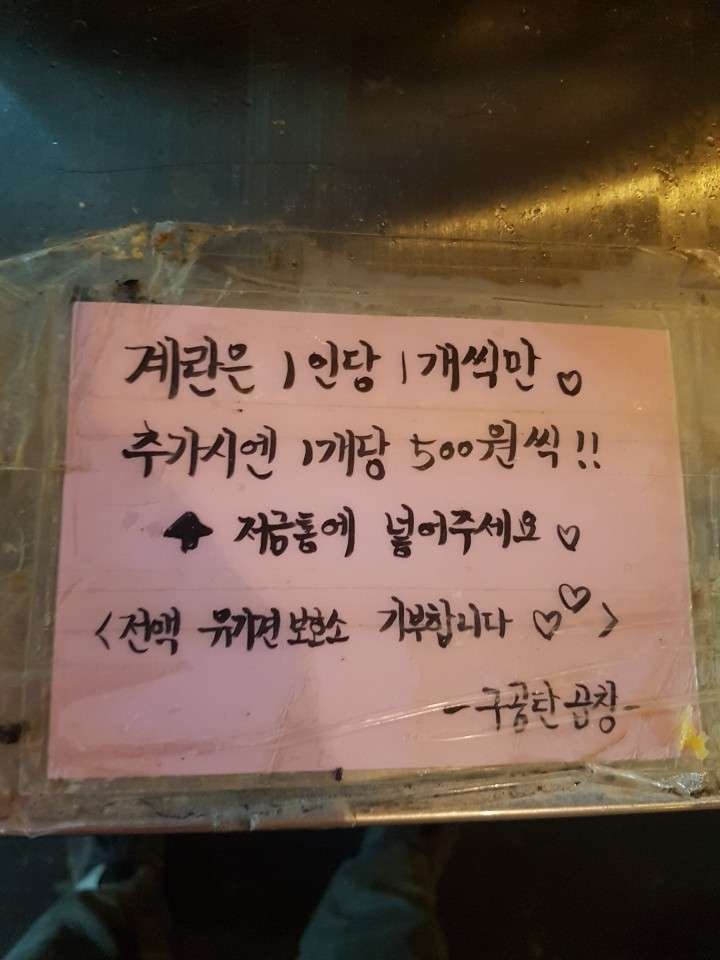 계란은 1인당 1개씩만 ♡
추가시엔 1개당 500원씩!!
⬆ 저금통에 넣어주세요 ♡
<전액 유기견보호소 기부합니다 ♡♡>
- 구공탄곱창 -